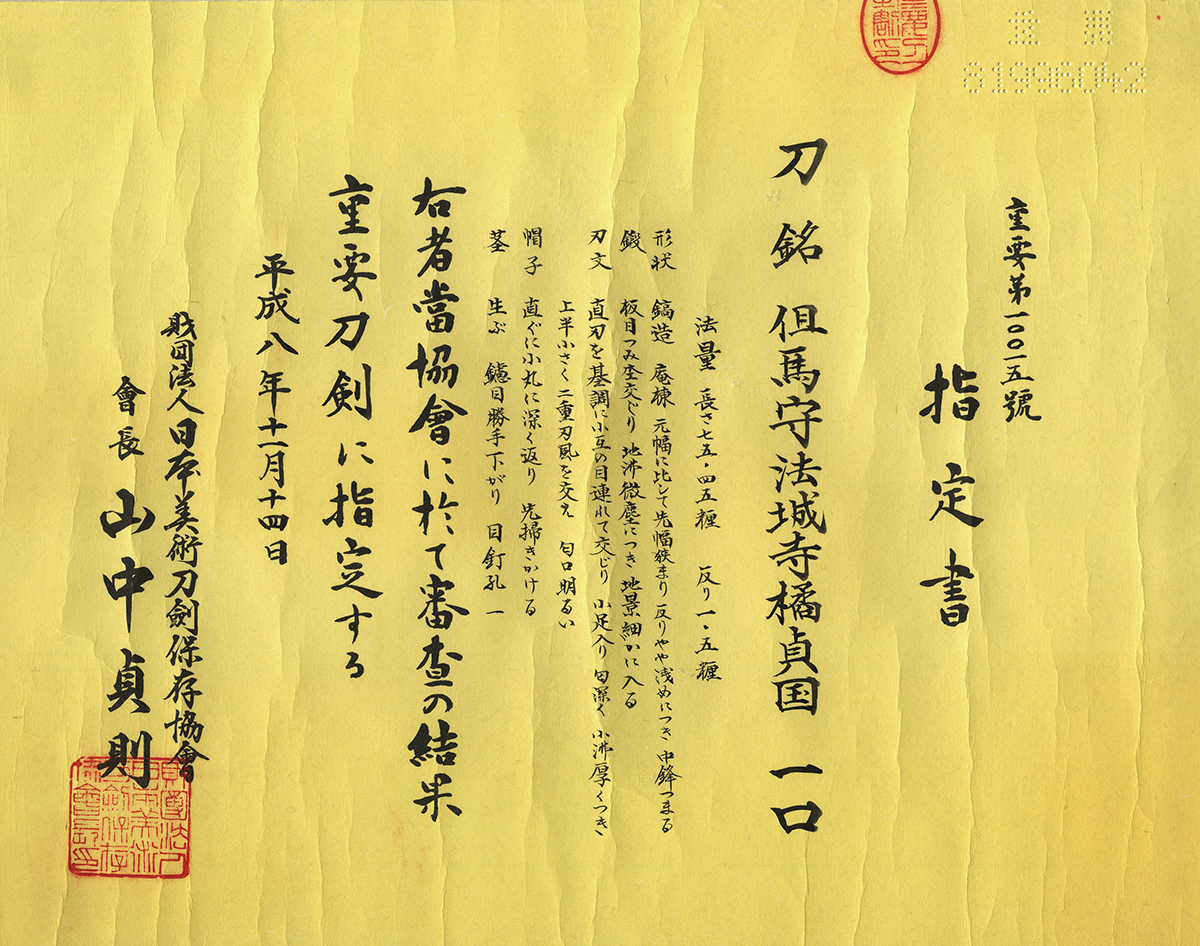 重要第一〇〇一五號
指定書
刀 銘 但馬守法城寺橘貞国 一口
法量 長さ七五・四五糎 反り一・五糎
形状 鎬造 庵棟 元幅に比して先幅狭まり 反りやや浅めにつき 中鋒つまる
鍛 板目つみ杢交じり 地沸微塵につき 地景細かに入る
刃文 直刃を基調に小互の目連れて交じり 小足入り 匂深く 小沸厚くつき
上半小さく二重刃風を交え 匂口明るい
帽子 直ぐに小丸に深く返り 先掃きかける
茎 生ぶ 鑢目勝手下がり 目釘孔一
右者當協會に於て審査の結果
重要刀剣に指定する
平成八年十一月十四日
財団法人日本美術刀劍保存協會
會長 山中貞則
81996042